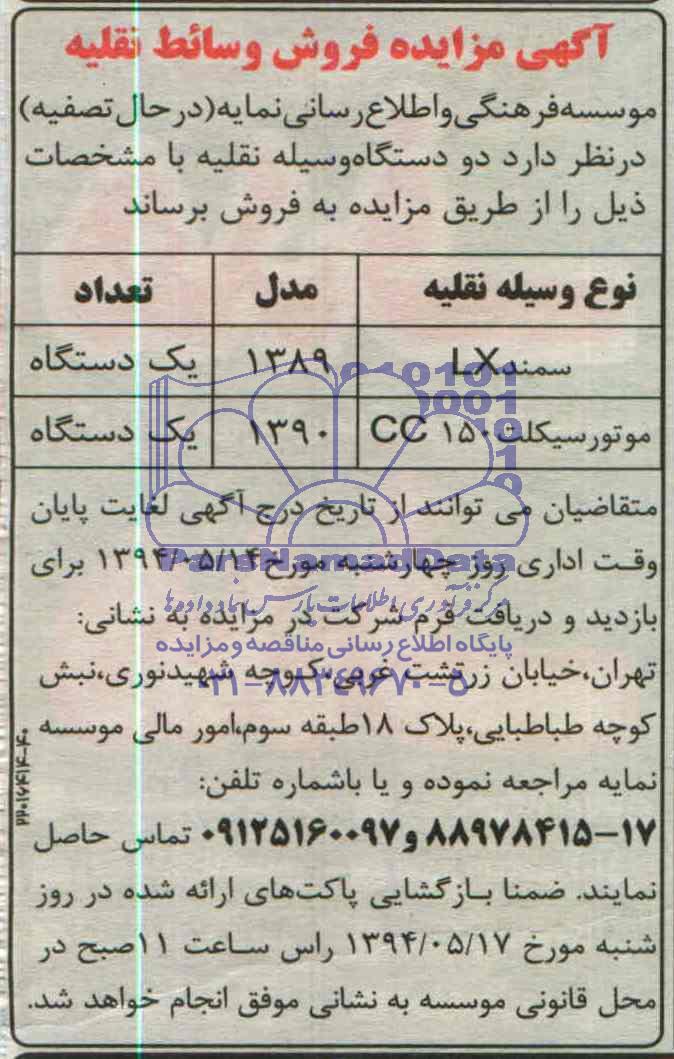 آگهی مزایده فروش وسائط نقلیه
موسسه فرهنگی و اطلاع رسانی نمایه (در حال تصفیه)
در نظر دارد دو دستگاه وسیله نقلیه با مشخصات
ذیل را از طریق مزایده به فروش برساند
نوع وسیله نقلیه مدل تعداد
سمند LX ۱۳۸۹ یک دستگاه
موتورسیکلت ۱۵۰ CC ۱۳۹۰ یک دستگاه
متقاضیان می توانند از تاریخ درج آگهی لغایت پایان
وقت اداری روز چهارشنبه مورخ ۱۳۹۴/۰۵/۱۴ برای
بازدید و دریافت فرم شرکت در مزایده به نشانی:
تهران، خیابان زرتشت غربی، کوچه شهید نوری، نبش
کوچه طباطبایی، پلاک ۱۸ طبقه سوم، امور مالی موسسه
نمایه مراجعه نموده و یا باشماره تلفن:
۸۸۹۷۸۴۱۵-۱۷ و ۰۹۱۲۵۱۶۰۰۹۷ تماس حاصل
نمایند. ضمنا بازگشایی پاکت‌های ارائه شده در روز
شنبه مورخ ۱۳۹۴/۰۵/۱۷ راس ساعت ۱۱صبح در
محل قانونی موسسه به نشانی موفق انجام خواهد شد.
ParsNamadData
مرکز فرآوری اطلاعات پارس نماد داده ها
پایگاه اطلاع رسانی مناقصه و مزایده
۰۲۱-۸۸۳۴۹۶۷۰-۵